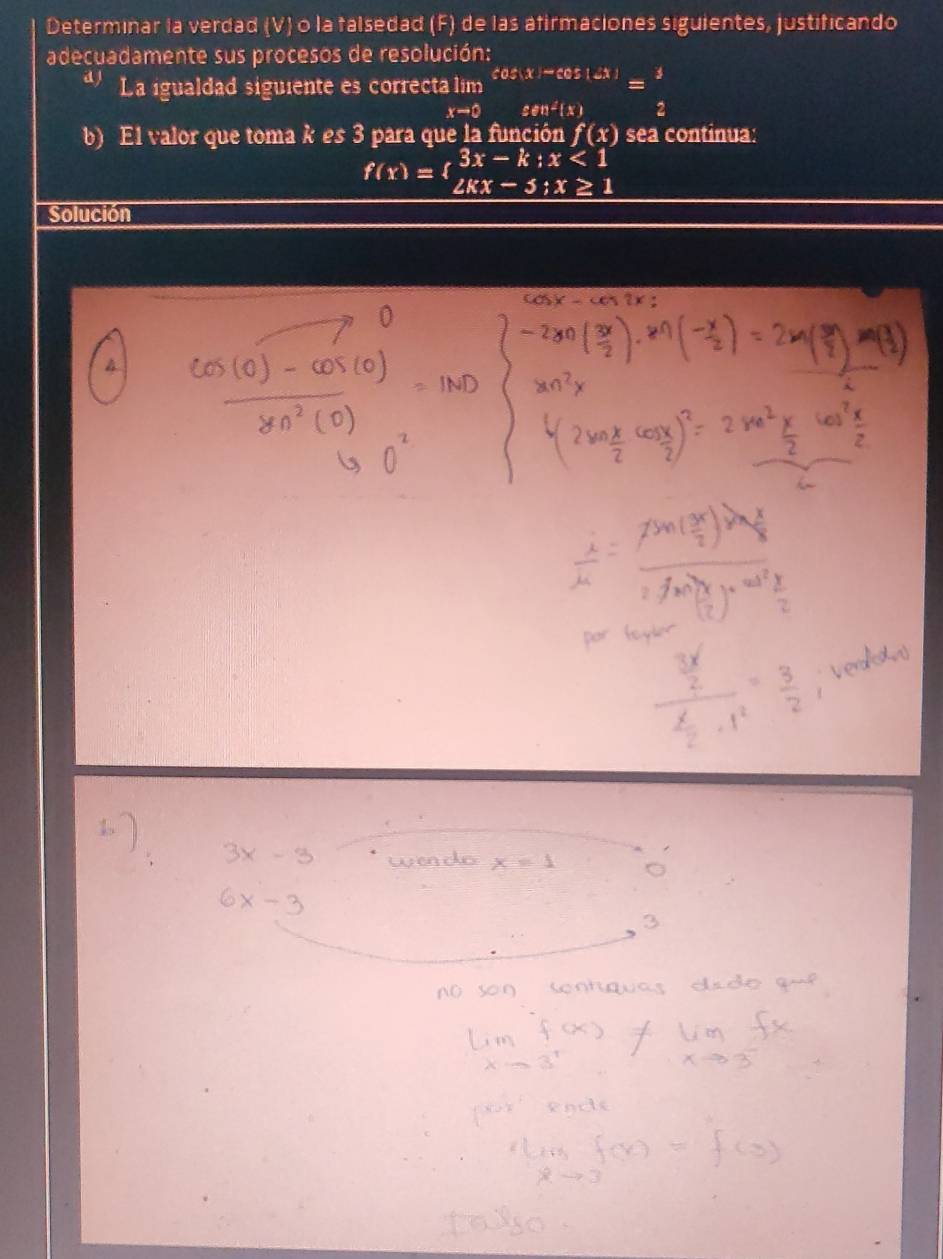 Determinar la verdad (V) o la falsedad (F) de las afirmaciones siguientes, justificando
adecuadamente sus procesos de resolución:
a) La igualdad siguiente es correcta lim x→0 (cos(x)−cos(2x))/(sen²(x)) = 3/2
b) El valor que toma k es 3 para que la función f(x) sea continua:
f(x) = { 3x − k ; x < 1
2kx − 3 ; x ≥ 1
Solución
cosx - cos2x:
(cos(0) - cos(0))/(sen²(0)) = IND
0
0²
-2sen(3x/2).sen(-x/2) = 2sen(3x/2) sen(x/2)
sen²x
(2sen x/2 cos x/2)² = 2sen² x/2 cos² x/2
por taylor
(3x/2)/(x/2 . 1²) = 3/2 ; verdadero
b)
3x - 3 cuando x = 1 0
6x - 3
3
no son continuas dado que
Lim x→3⁺ f(x) ≠ Lim x→3⁻ fx
por ende
Lim x→3 f(x) = f(3)
Falso.